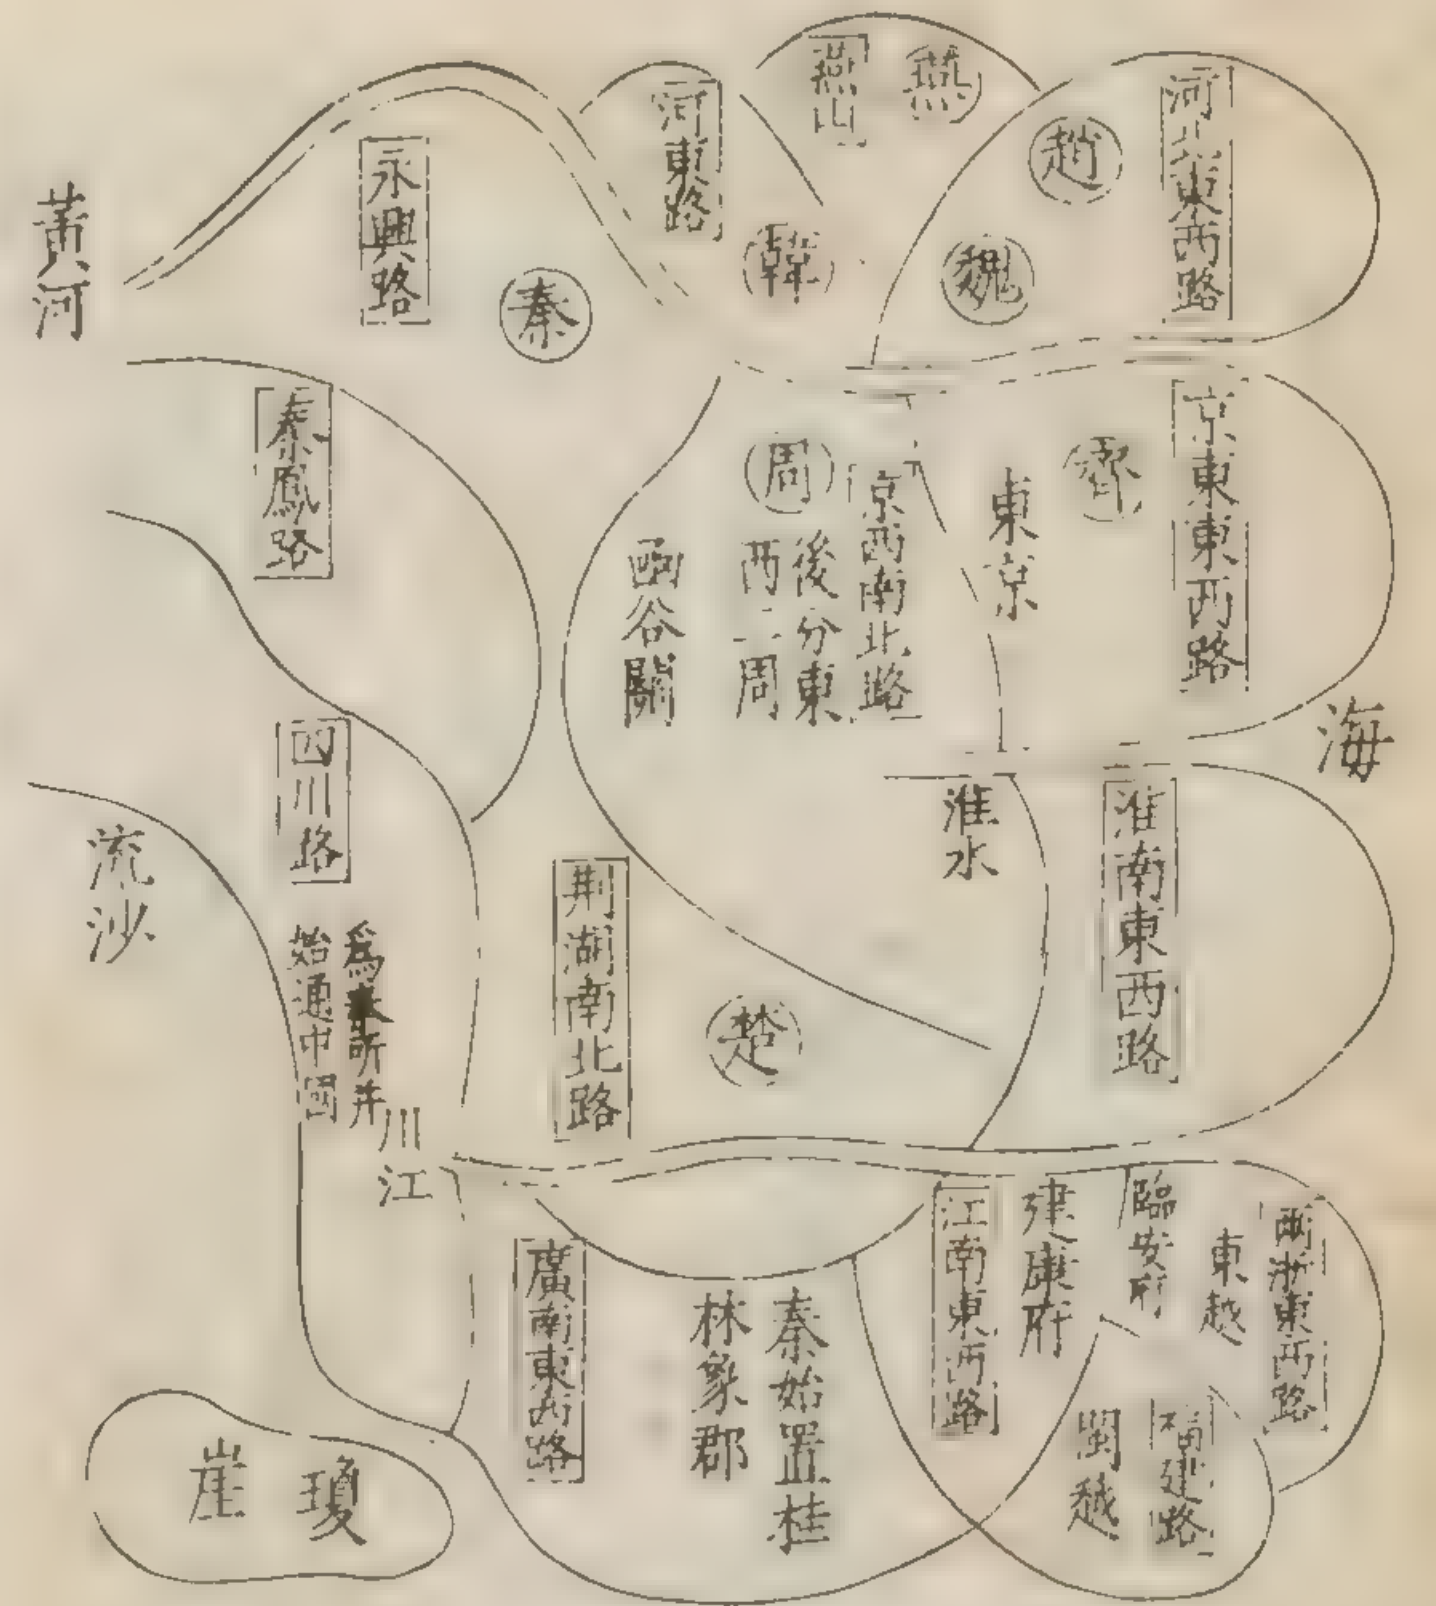 河北東西路
趙
魏
燕
燕山
河東路
韓
永興路
秦
黃河
京東東西路
齊
東京
京西南北路
周
後分東
西二周
函谷關
秦鳳路
海
淮南東西路
淮水
楚
荆湖南北路
四川路
為秦所并
始通中國
流沙
川江
兩浙東西路
東越
臨安府
建康府
江南東西路
福建路
閩越
秦始置桂
林象郡
廣南東西路
瓊
崖